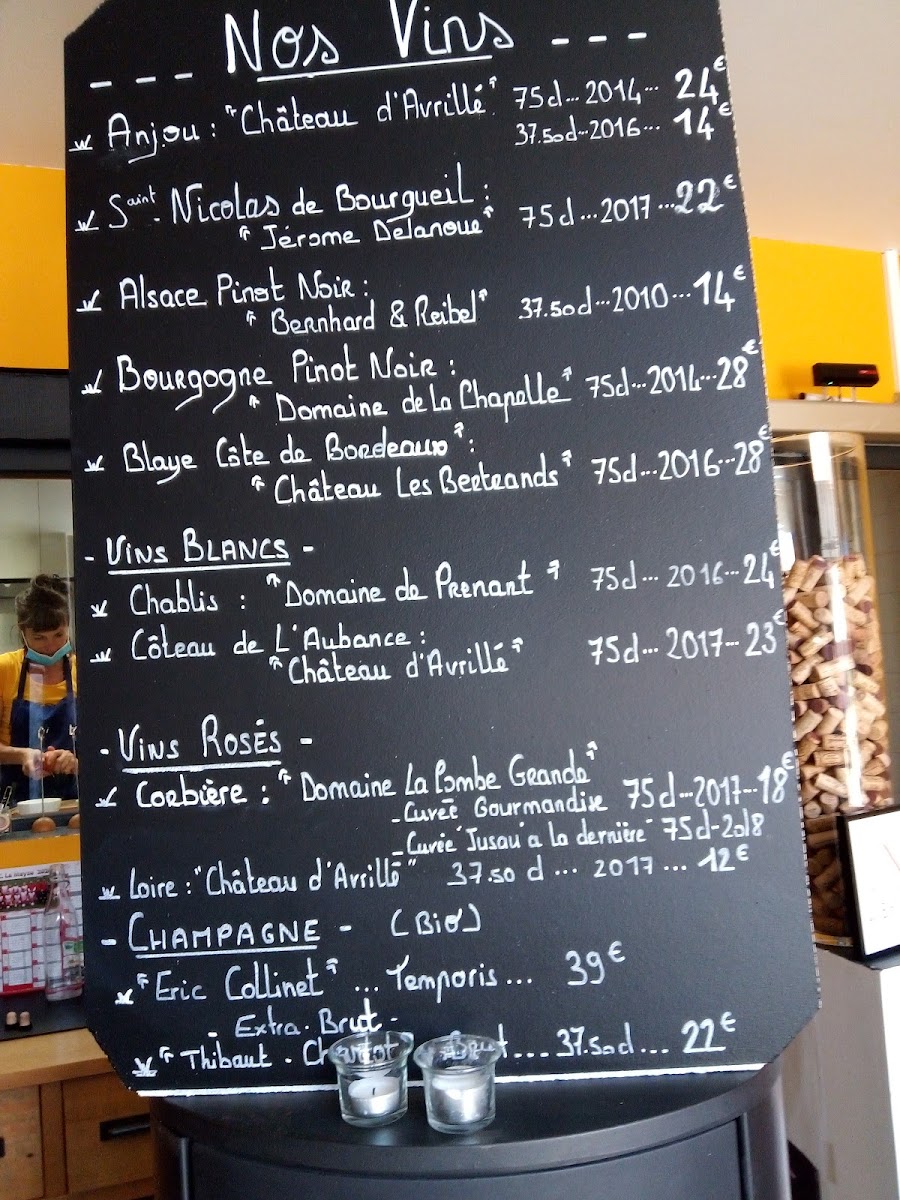 --- Nos Vins ---
Anjou : "Château d'Avrillé" 75cl... 2014... 24€
37.50cl...2016... 14€
Saint. Nicolas de Bourgueil :
"Jérôme Delanoue" 75cl...2017...22€
Alsace Pinot Noir :
"Bernhard & Reibel" 37.50cl...2010...14€
Bourgogne Pinot Noir :
"Domaine de la Chapelle" 75cl...2014...28€
Blaye Côte de Bordeaux" :
"Château Les Bertrands" 75cl...2016...28€
- Vins Blancs -
Chablis : "Domaine de Prenant" 75cl... 2016...24€
Côteau de L'Aubance :
"Château d'Avrillé" 75cl... 2017... 23€
- Vins Rosés -
Corbière : "Domaine La Combe Grande"
- Cuvée Gourmandise 75cl...2017...18€
- Cuvée "Jusqu'a la dernière" 75cl-2018
Loire : "Château d'Avrillé" 37.50 cl... 2017... 12€
- Champagne - (Bio)
"Eric Collinet" ... Temporis... 39€
- Extra. Brut -
"Thibaut - Brut.... 37.50cl... 22€